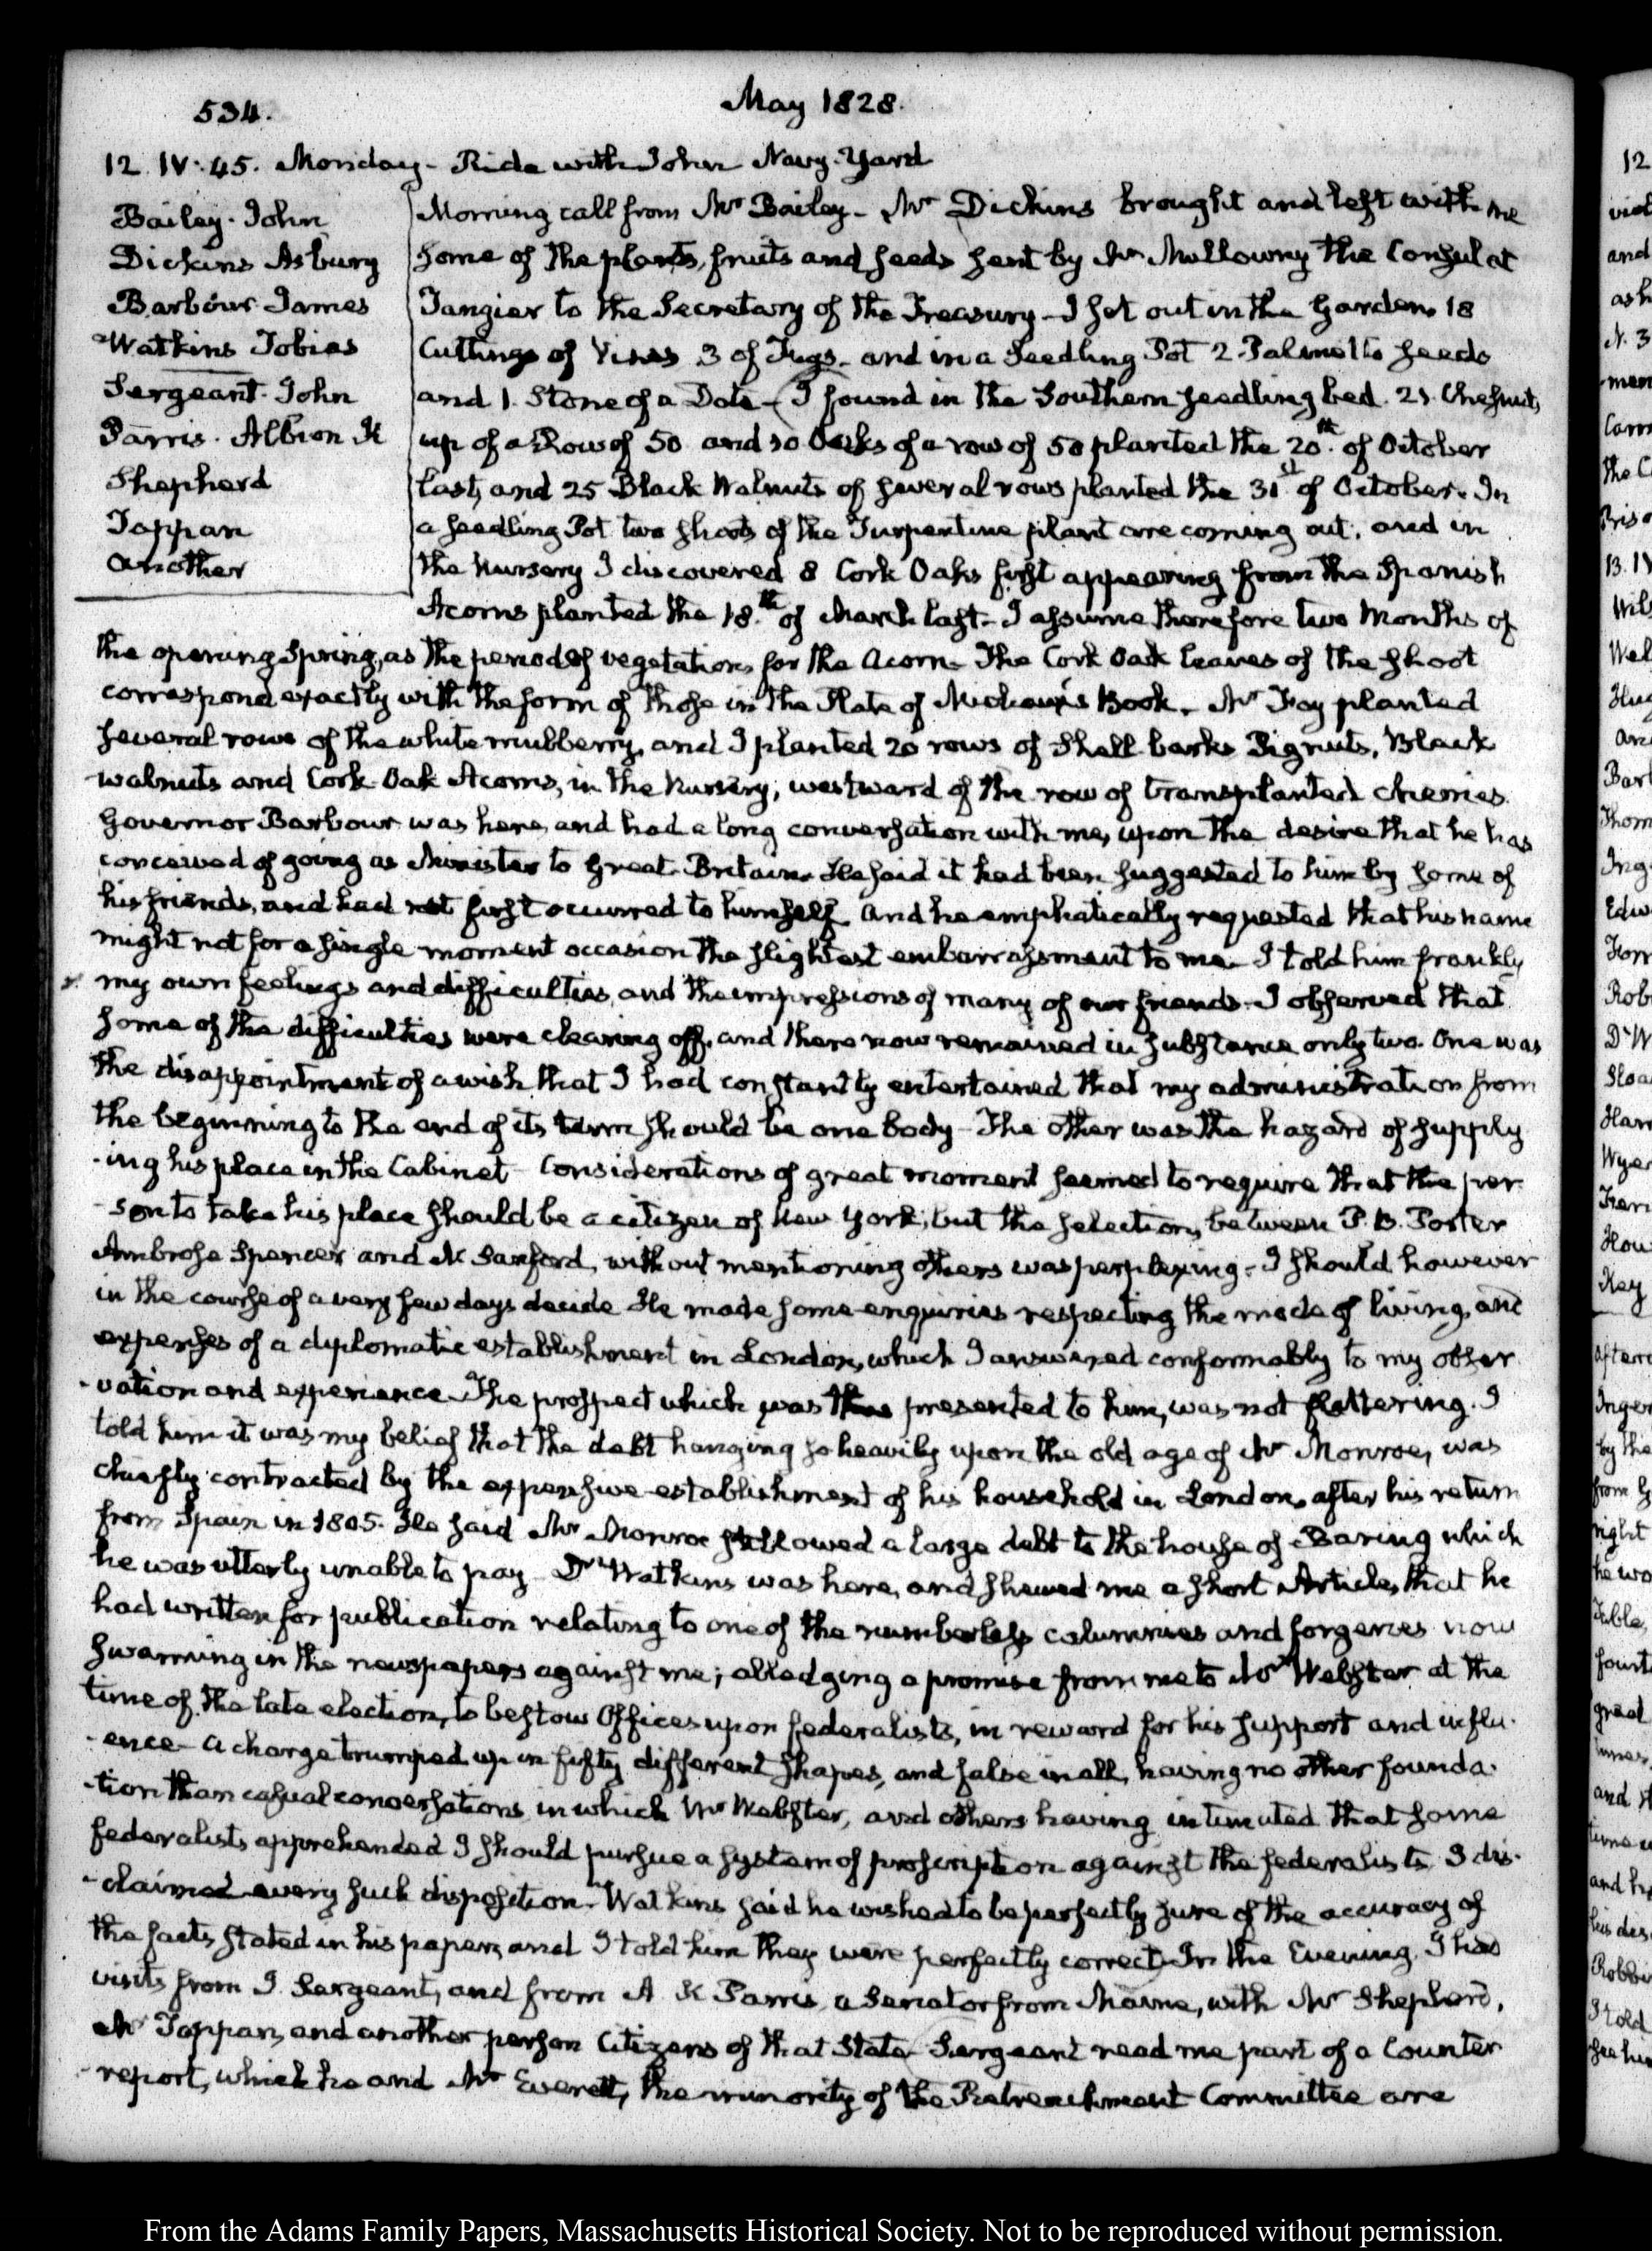 534.
May 1828.
12. IV:45. Monday - Ride with John Navy-Yard
Bailey. John
Dickins Asbury
Barbour James
Watkins Tobias
Sergeant. John
Parris. Albion K
Shepherd
Tappan
another
Morning call from Mr Bailey - Mr Dickins brought and left with me
some of the plants, fruits and seeds sent by Mr Mullowny the Consul at
Tangier to the Secretary of the Treasury - I set out in the Garden 18
Cuttings of Vines 3 of Figs - and in a Seedling Pot 2 Palmetto seeds
and 1. Stone of a Date - I found in the Southern seedling bed. 21. Chesnuts
up of a Row of 50 and 10 Oaks of a row of 50 planted the 20th. of October
last, and 25 Black Walnuts of several rows planted the 31st of October. In
a seedling Pot two shoots of the Turpentine plant are coming out; and in
the Nursery I discovered 8 Cork Oaks first appearing from the Spanish
Acorns planted the 18.th of March last - I assume therefore two Months of
the opening Spring, as the period of vegetation for the Acorn - The Cork Oak leaves of the shoot
correspond exactly with the form of those in the Plate of Michaux's Book. Mr Foy planted
several rows of the white mulberry, and I planted 20 rows of Shell barks Pignuts, Black
walnuts and Cork Oak Acorns, in the Nursery, westward of the row of transplanted cherries.
Governor Barbour was here, and had a long conversation with me, upon the desire that he has
conceived of going as Minister to Great-Britain. He said it had been suggested to him by some of
his friends, and had not first occurred to himself. And he emphatically requested that his name
might not for a single moment occasion the slightest embarrassment to me. I told him frankly
my own feelings and difficulties, and the impressions of many of our friends. I observed that
some of the difficulties were clearing off, and there now remained in substance only two. One was
the disappointment of a wish that I had constantly entertained that my administration from
the beginning to the end of its term should be one body - The other was the hazard of supply
-ing his place in the Cabinet - Considerations of great moment seemed to require that the per
-son to take his place should be a citizen of New York; but the selection, between P. B. Porter
Ambrose Spencer and N. Sanford, without mentioning others was perplexing - I should however
in the course of a very few days decide He made some enquiries respecting the mode of living, and
expenses of a diplomatic establishment in London, which I answered conformably to my obser
-vation and experience - The prospect which was thus presented to him, was not flattering. I
told him it was my belief that the debt hanging so heavily upon the old age of Mr Monroe, was
chiefly contracted by the expensive establishment of his household in London, after his return
from Spain in 1805. He said Mr Monroe still owed a large debt to the house of Baring which
he was utterly unable to pay - Dr Watkins was here, and shewed me a short Article, that he
had written for publication relating to one of the numberless calumnies and forgeries now
swarming in the newspapers against me; alledging a promise from me to Mr Webster at the
time of the late election, to bestow Offices upon federalists, in reward for his support and influ-
-ence - a charge trumped up in fifty different shapes, and false in all, having no other founda-
-tion than casual conversations in which Mr Webster, and others having intimated that some
federalists apprehended I should pursue a system of proscription against the federalists I dis-
-claimed every such disposition. Watkins said he wished to be perfectly sure of the accuracy of
the facts stated in his paper, and I told him they were perfectly correct - In the Evening I had
visits from J. Sergeant, and from A K Parris, a Senator from Maine, with Mr Shepherd,
Mr Tappan, and another person Citizens of that State - Sergeant read me part of a Counter
-report, which he and Mr Everett, the minority of the Retrenchment Committee are
From the Adams Family Papers, Massachusetts Historical Society. Not to be reproduced without permission.